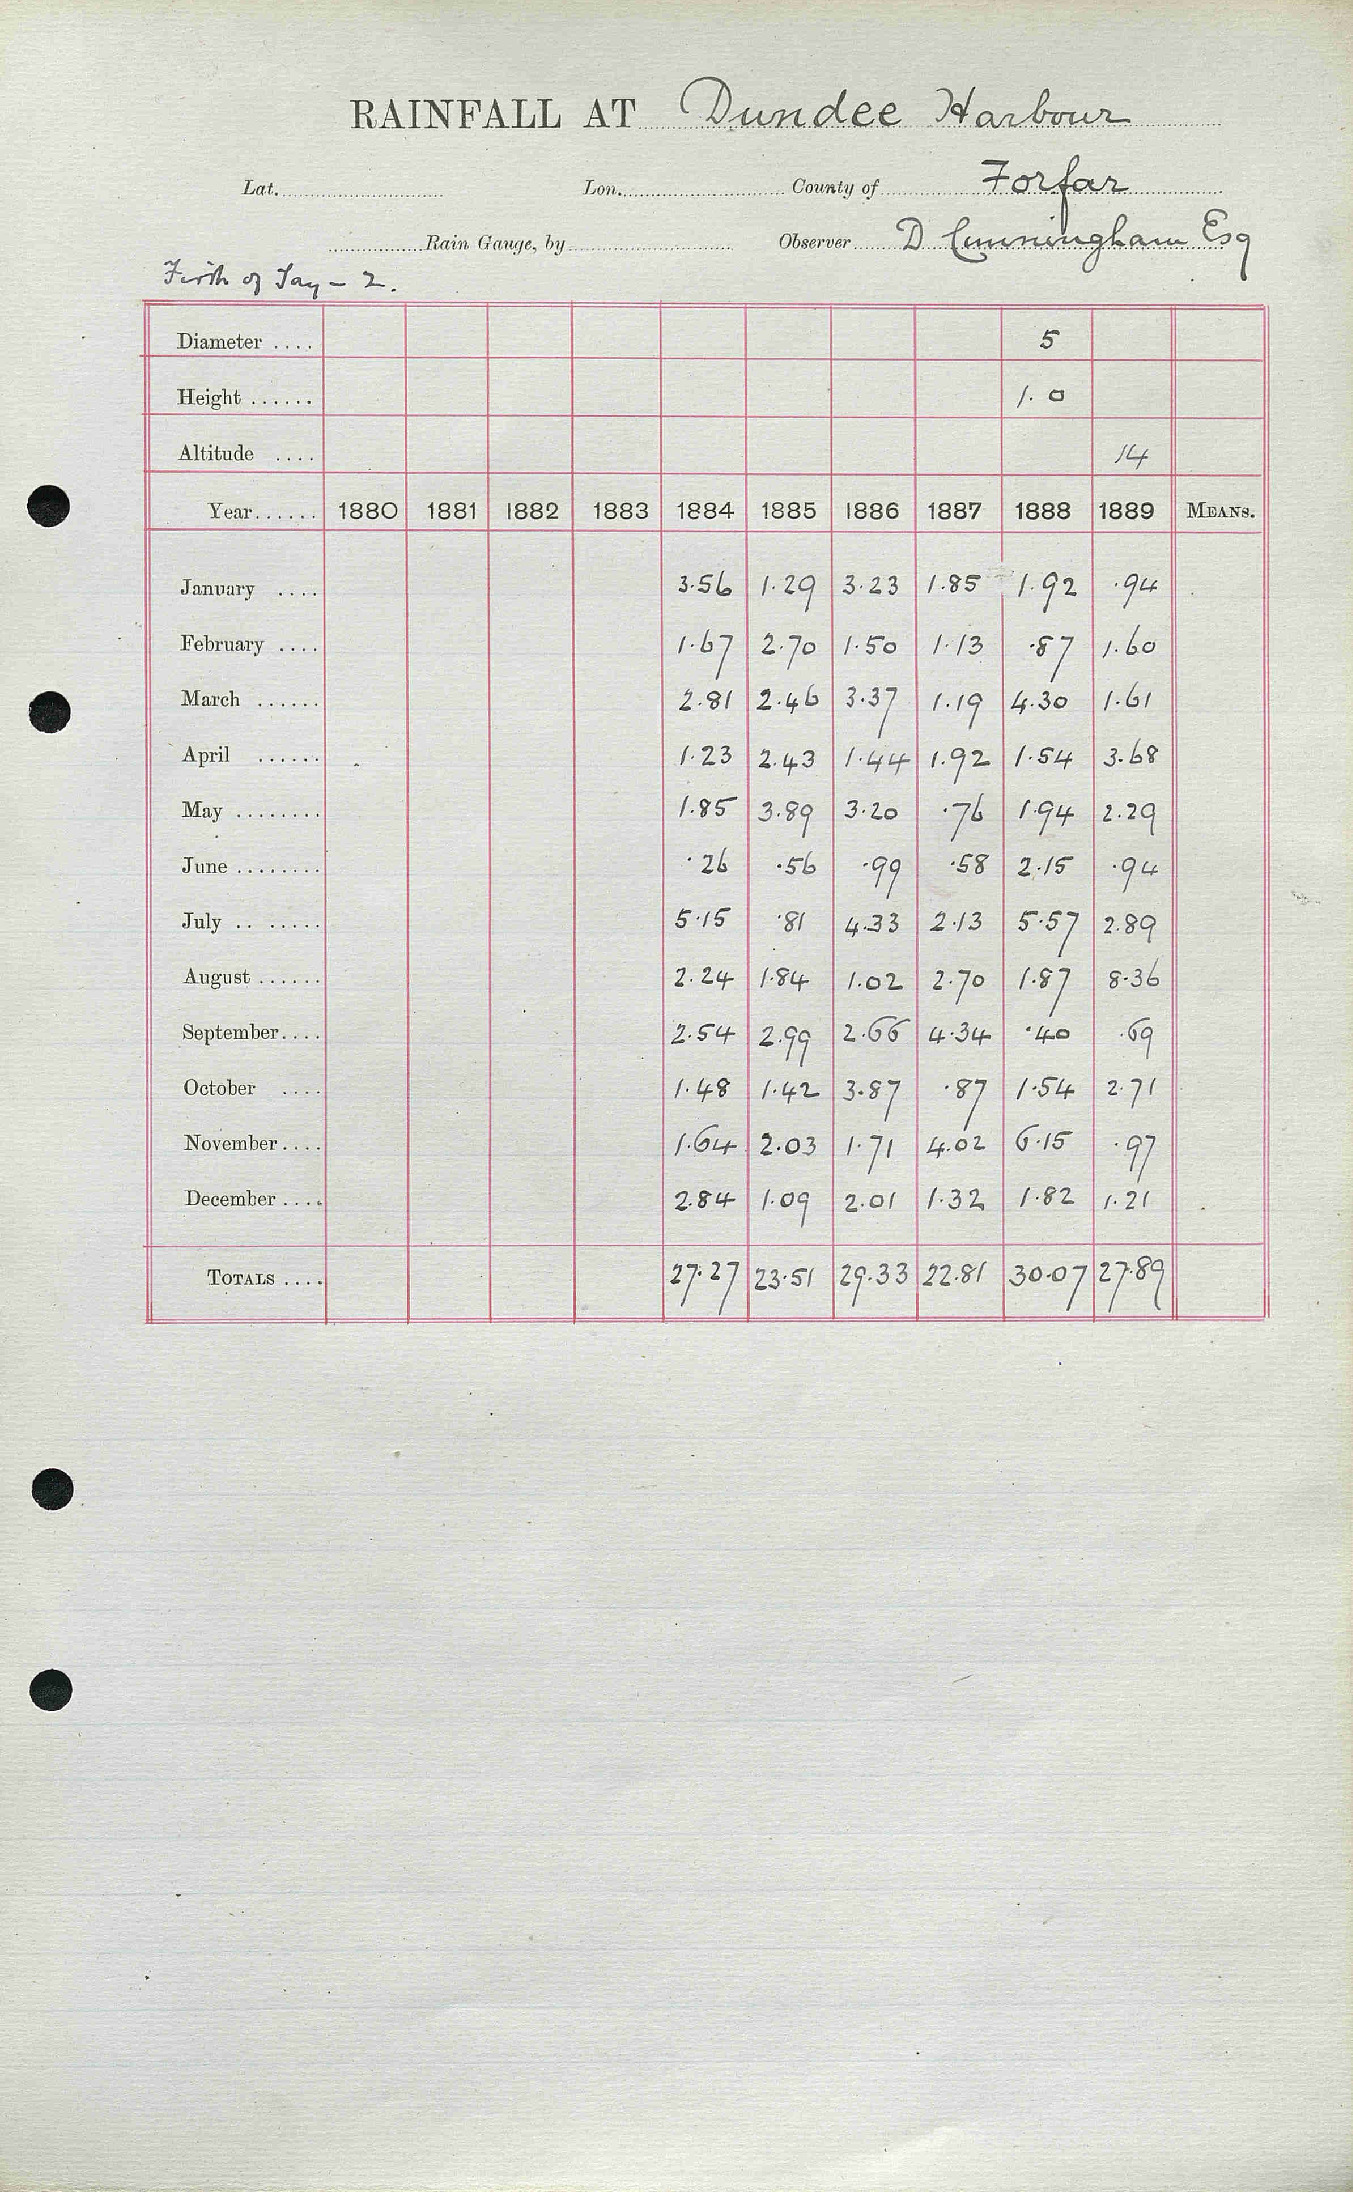 RAINFALL AT Dundee Harbour
Lat. Lon. County of Forfar
Rain Gauge, by Observer D Cunningham Esq
Firth of Tay – 2.
Diameter .... 5
Height ...... 1.0
Altitude .... 14
Year...... 1880 1881 1882 1883 1884 1885 1886 1887 1888 1889 MEANS.
January .... 3.56 1.29 3.23 1.85 1.92 .94
February .... 1.67 2.70 1.50 1.13 .87 1.60
March ...... 2.81 2.46 3.37 1.19 4.30 1.61
April ...... 1.23 2.43 1.44 1.92 1.54 3.68
May ........ 1.85 3.89 3.20 .76 1.94 2.29
June ........ .26 .56 .99 .58 2.15 .94
July .. ..... 5.15 .81 4.33 2.13 5.57 2.89
August ...... 2.24 1.84 1.02 2.70 1.87 8.36
September.... 2.54 2.99 2.66 4.34 .40 .69
October .... 1.48 1.42 3.87 .87 1.54 2.71
November.... 1.64 2.03 1.71 4.02 6.15 .97
December .... 2.84 1.09 2.01 1.32 1.82 1.21
TOTALS .... 27.27 23.51 29.33 22.81 30.07 27.89